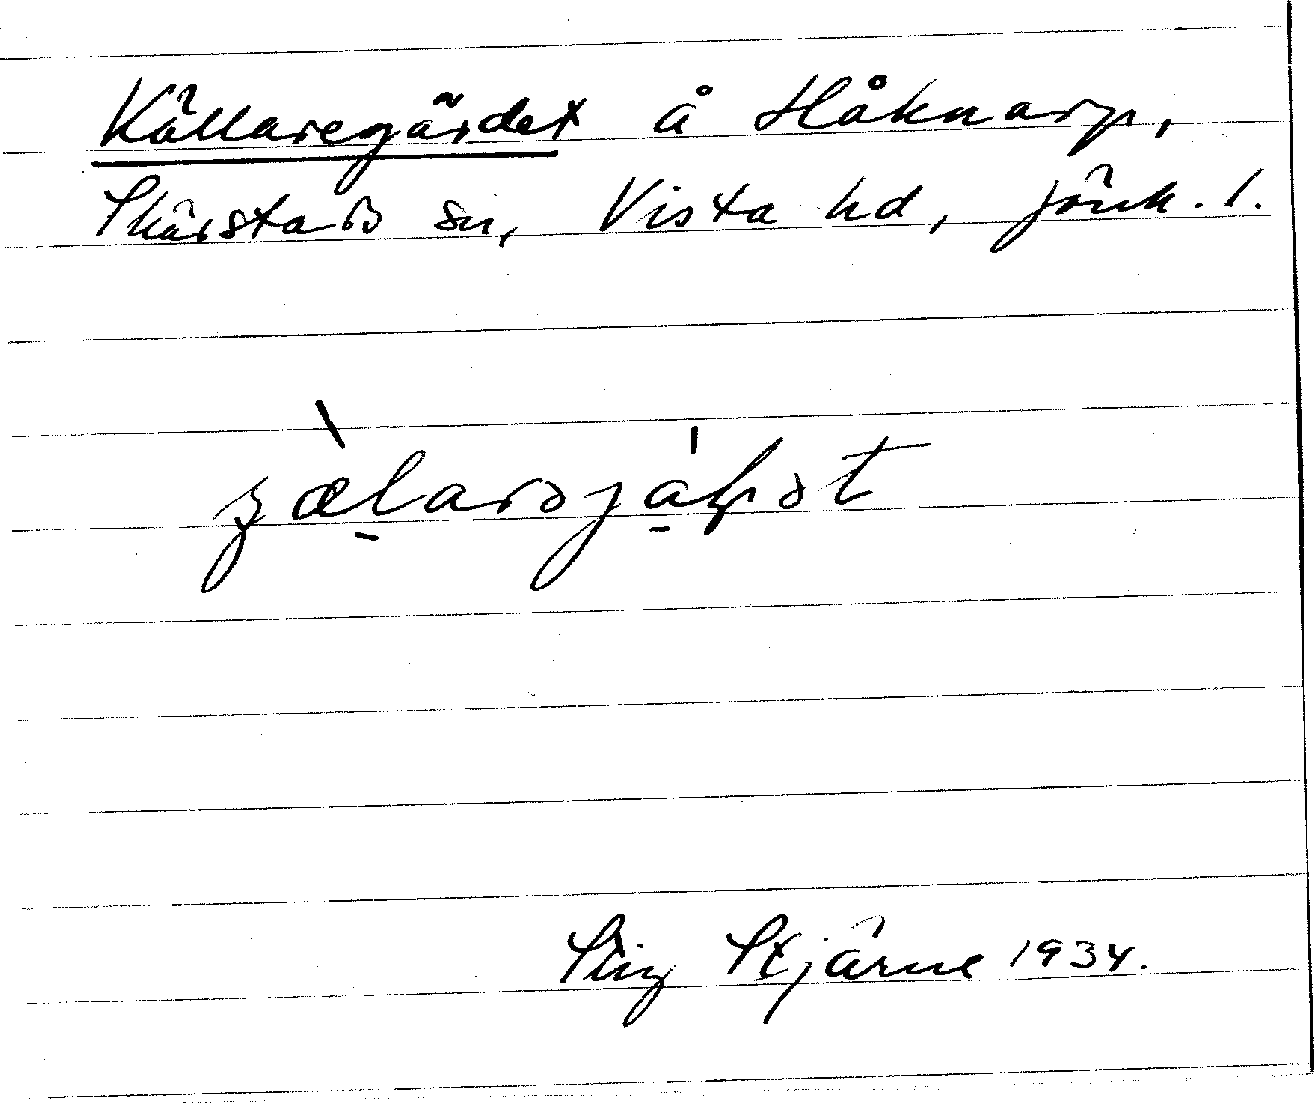 Källaregärdet å Håknarp,
Skärstads sn, Vista hd, Jönk. l.
Stig Stjärne 1934.